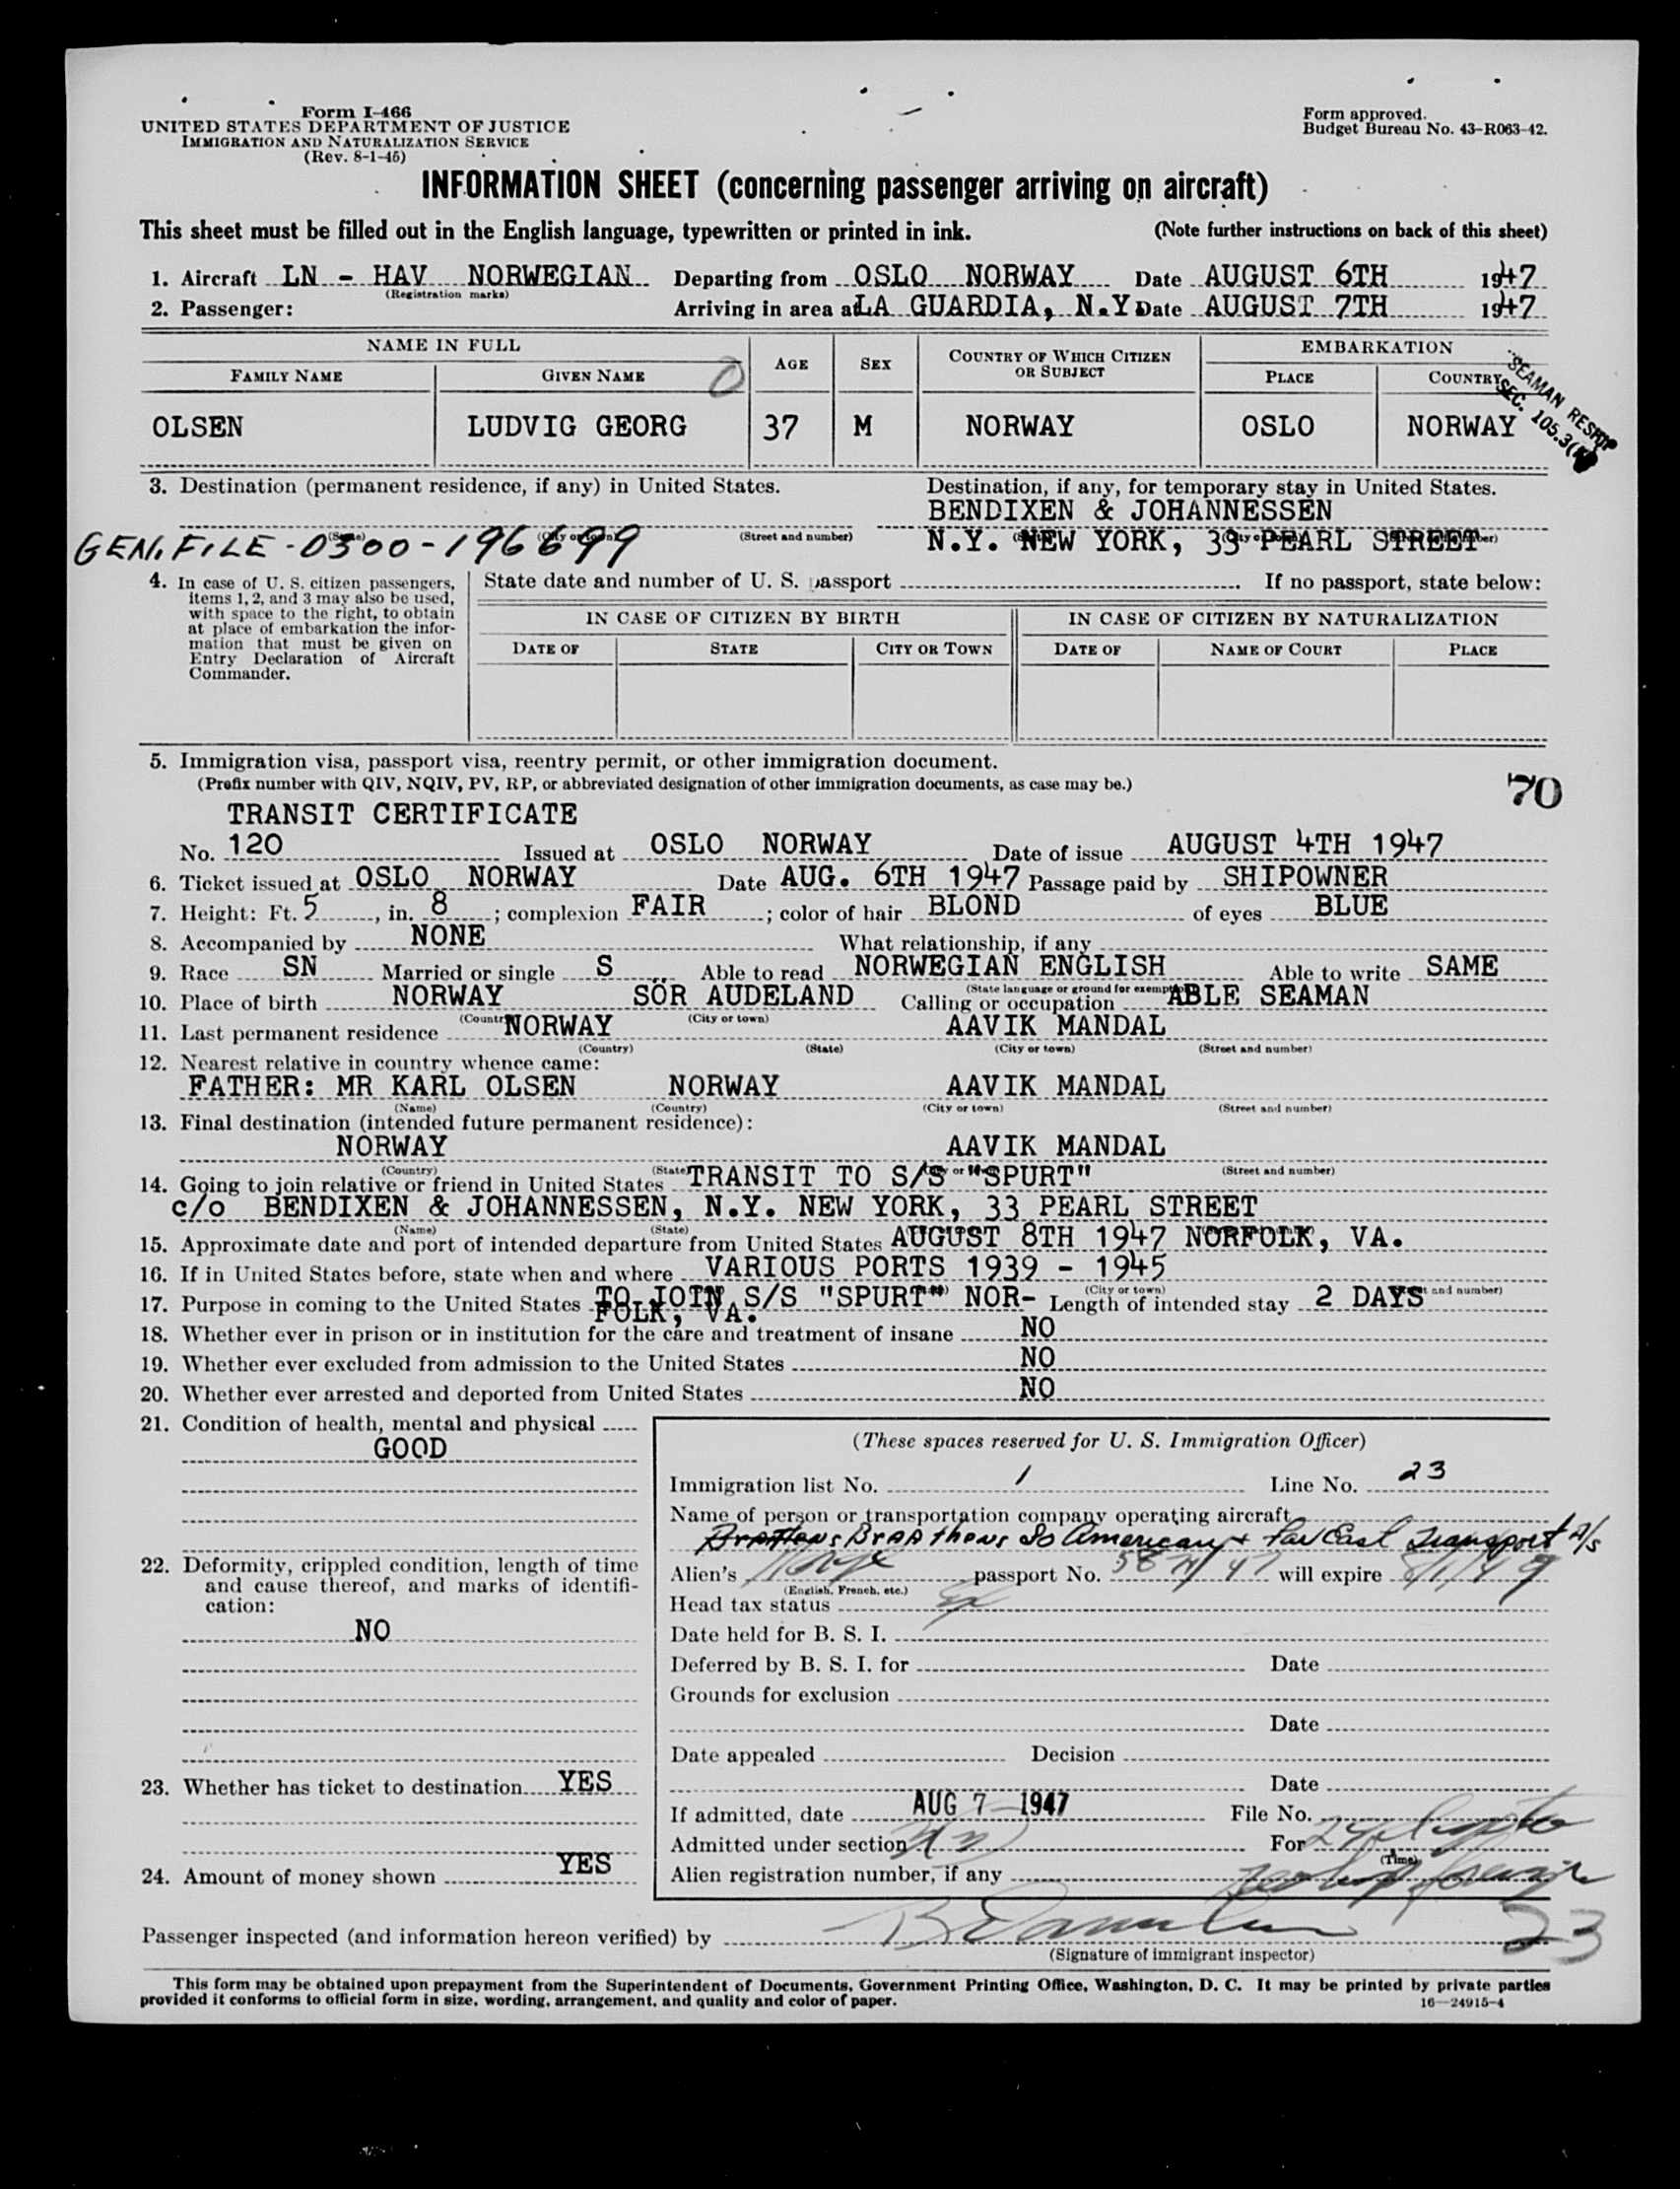 Form I-466
UNITED STATES DEPARTMENT OF JUSTICE
IMMIGRATION AND NATURALIZATION SERVICE
(Rev. 8-1-45)
Form approved.
Budget Bureau No. 43-R063-42.
INFORMATION SHEET (concerning passenger arriving on aircraft)
This sheet must be filled out in the English language, typewritten or printed in ink. (Note further instructions on back of this sheet)
1. Aircraft LN - HAV NORWEGIAN Departing from OSLO NORWAY Date AUGUST 6TH 1947
(Registration marks)
2. Passenger: Arriving in area at LA GUARDIA, N.Y Date AUGUST 7TH 1947
NAME IN FULL AGE SEX COUNTRY OF WHICH CITIZEN OR SUBJECT EMBARKATION
FAMILY NAME GIVEN NAME PLACE COUNTRY
0
SEAMAN RESHIP
SEC. 105.3
OLSEN LUDVIG GEORG 37 M NORWAY OSLO NORWAY
3. Destination (permanent residence, if any) in United States. Destination, if any, for temporary stay in United States.
BENDIXEN & JOHANNESSEN
GEN. FILE - 0300-196699 (State) (City or town) (Street and number) N.Y. NEW YORK, 33 PEARL STREET
4. In case of U. S. citizen passengers, items 1, 2, and 3 may also be used, with space to the right, to obtain at place of embarkation the information that must be given on Entry Declaration of Aircraft Commander.
State date and number of U. S. passport If no passport, state below:
IN CASE OF CITIZEN BY BIRTH IN CASE OF CITIZEN BY NATURALIZATION
DATE OF STATE CITY OR TOWN DATE OF NAME OF COURT PLACE
5. Immigration visa, passport visa, reentry permit, or other immigration document.
(Prefix number with QIV, NQIV, PV, RP, or abbreviated designation of other immigration documents, as case may be.)
70
TRANSIT CERTIFICATE
No. 120 Issued at OSLO NORWAY Date of issue AUGUST 4TH 1947
6. Ticket issued at OSLO NORWAY Date AUG. 6TH 1947 Passage paid by SHIPOWNER
7. Height: Ft. 5, in. 8; complexion FAIR; color of hair BLOND of eyes BLUE
8. Accompanied by NONE What relationship, if any
9. Race SN Married or single S Able to read NORWEGIAN ENGLISH Able to write SAME
(State language or ground for exemption)
10. Place of birth NORWAY SÖR AUDELAND Calling or occupation ABLE SEAMAN
(Country) (City or town)
11. Last permanent residence NORWAY AAVIK MANDAL
(Country) (State) (City or town) (Street and number)
12. Nearest relative in country whence came:
FATHER: MR KARL OLSEN NORWAY AAVIK MANDAL
(Name) (Country) (City or town) (Street and number)
13. Final destination (intended future permanent residence):
NORWAY AAVIK MANDAL
(Country) (State) (City or town) (Street and number)
14. Going to join relative or friend in United States TRANSIT TO S/S "SPURT"
c/o BENDIXEN & JOHANNESSEN, N.Y. NEW YORK, 33 PEARL STREET
(Name) (State)
15. Approximate date and port of intended departure from United States AUGUST 8TH 1947 NORFOLK, VA.
16. If in United States before, state when and where VARIOUS PORTS 1939 - 1945
(City or town) (Street and number)
17. Purpose in coming to the United States TO JOIN S/S "SPURT" NOR- Length of intended stay 2 DAYS
FOLK, VA.
18. Whether ever in prison or in institution for the care and treatment of insane NO
19. Whether ever excluded from admission to the United States NO
20. Whether ever arrested and deported from United States NO
21. Condition of health, mental and physical
GOOD
22. Deformity, crippled condition, length of time and cause thereof, and marks of identification:
NO
23. Whether has ticket to destination YES
24. Amount of money shown YES
(These spaces reserved for U. S. Immigration Officer)
Immigration list No. 1 Line No. 23
Name of person or transportation company operating aircraft
Braathens So American & Far East Transport A/S
Alien's passport No. will expire
(English, French, etc.)
Head tax status
Date held for B. S. I.
Deferred by B. S. I. for Date
Grounds for exclusion
Date
Date appealed Decision
Date
If admitted, date AUG 7 - 1947 File No.
Admitted under section For
(Time)
Alien registration number, if any
Passenger inspected (and information hereon verified) by
23
(Signature of immigrant inspector)
This form may be obtained upon prepayment from the Superintendent of Documents, Government Printing Office, Washington, D. C. It may be printed by private parties
provided it conforms to official form in size, wording, arrangement, and quality and color of paper.
16—24915-4